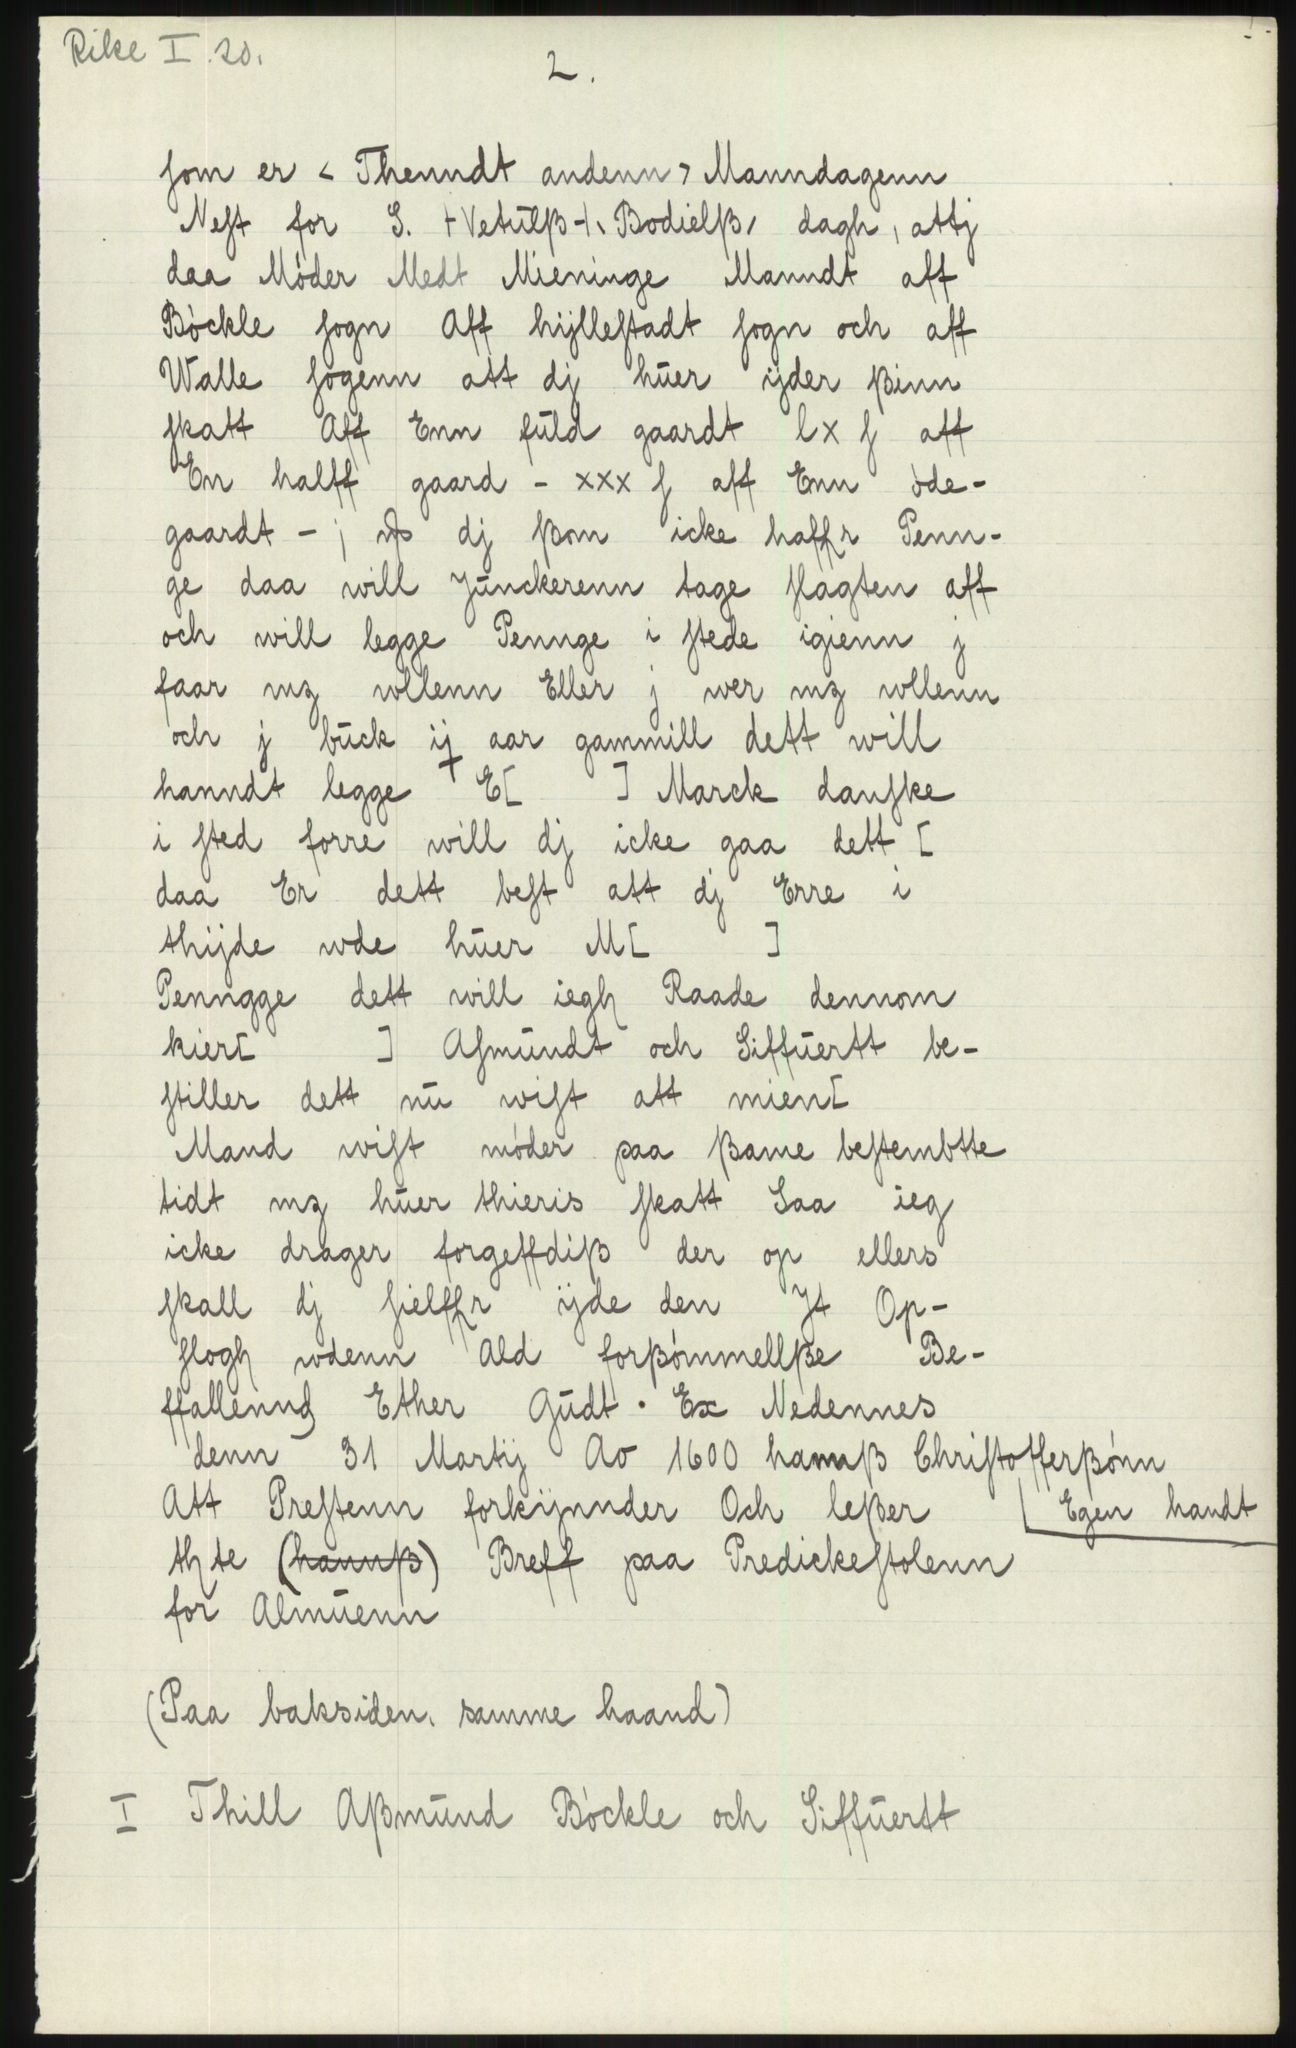 Rike I. 20.
2.
ſom er < Thenndt andenn > Manndagenn
Neſt for S. ⊢Vetúlß⊣ ‵Bodielß′ dagh, attj
daa Móder Medt Mieninge Manndt aff
Bóckle ſogn Aff hijlleſtadt ſogn och aff
Walle ſogenn att dj húer ijder ßinn
ſkatt Aff Enn fúld gaardt lx ſ aff
En halff gaard - xxx ſ aff Enn óde-
gaardt - j dj ßom icke haffr Penn-
ge daa will Júnckerenn tage ſlagten aff
och will legge Pennge i ſtede igienn j
faar mz wllenn Eller j wer mz wllenn
och j búck ij aar gammill dett will
hanndt legge + E[ ] Marck danſke
i ſted forre will dj icke gaa dett [
daa Er dett beſt att dj Erre i
thijde wde húer M[ ]
Penngge dett will iegh Raade dennom
kier[ ] Aſmúndt och Siffúertt be-
ſtiller dett nú wiſt att mien[
Mand wiſt móder paa ßame beſtembtte
tidt mz húer thieris ſkatt Saa ieg
icke drager forgeffdiß der op ellers
ſkall dj ſielffr ijde den Jt Op-
ſlogh wdenn Ald forßómmellße Be-
ffallennd Ether Gúdt. Ex Nedennes
denn 31 Martij Ao 1600 hannß Chriſtofferßónn
Att Preſtenn forkijnnder Och leßer Egen handt
thte (hannß) Breff paa Predickeſtolenn
for Almúenn
(Paa baksiden. samme haand)
I Thill Aßmúnd Bóckle och Siffúertt